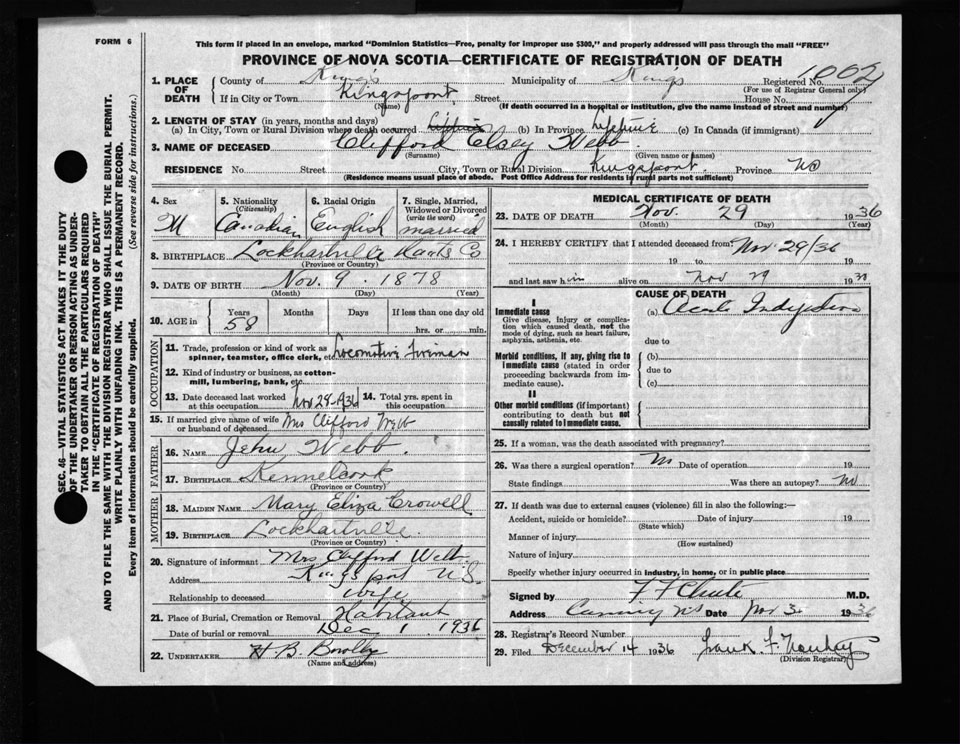 FORM 6
This form if placed in an envelope, marked "Dominion Statistics—Free, penalty for improper use $300," and properly addressed will pass through the mail "FREE"
PROVINCE OF NOVA SCOTIA—CERTIFICATE OF REGISTRATION OF DEATH
1. PLACE OF DEATH
County of King's Municipality of Kings Registered No. 1002
(For use of Registrar General only)
If in City or Town Kingsport, Street House No.
(Name) (If death occurred in a hospital or institution, give the name instead of street and number)
2. LENGTH OF STAY (in years, months and days)
(a) In City, Town or Rural Division where death occurred (b) In Province Lifetime (c) In Canada (if immigrant)
3. NAME OF DECEASED Clifford Elsey Webb
(Surname) (Given name or names)
RESIDENCE No. Street City, Town or Rural Division Kingsport. Province NS
(Residence means usual place of abode. Post Office Address for residents in rural parts not sufficient)
4. Sex M
5. Nationality (Citizenship) Canadian
6. Racial Origin English
7. Single, Married, Widowed or Divorced (write the word) married
8. BIRTHPLACE Lockhartville Hants Co
(Province or Country)
9. DATE OF BIRTH Nov. 9 1878
(Month) (Day) (Year)
10. AGE in Years 58 Months Days If less than one day old hrs. or min.
OCCUPATION
11. Trade, profession or kind of work as spinner, teamster, office clerk, etc. Locomotive Fireman
12. Kind of industry or business, as cotton-mill, lumbering, bank, etc.
13. Date deceased last worked at this occupation Nov 28-1936 14. Total yrs. spent in this occupation
15. If married give name of wife or husband of deceased Mrs Clifford Webb
FATHER
16. NAME John Webb
17. BIRTHPLACE Kennetcook
(Province or Country)
MOTHER
18. MAIDEN NAME Mary Eliza Crowell
19. BIRTHPLACE Lockhartville
(Province or Country)
20. Signature of informant Mrs Clifford Webb
Address Kingsport N.S.
Relationship to deceased wife
21. Place of Burial, Cremation or Removal Habitant
Date of burial or removal Dec 1. 1936
22. UNDERTAKER H B Bowlby
(Name and address)
MEDICAL CERTIFICATE OF DEATH
23. DATE OF DEATH Nov. 29 1936
(Month) (Day) (Year)
24. I HEREBY CERTIFY that I attended deceased from Nov 29/36
19 to 19
and last saw him alive on Nov 29 19
CAUSE OF DEATH
I
Immediate cause
Give disease, injury or complication which caused death, not the mode of dying, such as heart failure, asphyxia, asthenia, etc.
(a) Acute Indigestion
due to
Morbid conditions, if any, giving rise to immediate cause (stated in order proceeding backwards from immediate cause).
(b)
due to
(c)
II
Other morbid conditions (if important) contributing to death but not causally related to immediate cause.
25. If a woman, was the death associated with pregnancy?
26. Was there a surgical operation? No Date of operation 19
State findings Was there an autopsy? No
27. If death was due to external causes (violence) fill in also the following:—
Accident, suicide or homicide? Date of injury 19
(State which)
Manner of injury
(How sustained)
Nature of injury
Specify whether injury occurred in industry, in home, or in public place
Signed by F F Chute M.D.
Address Canning NS Date Nov 1936
28. Registrar's Record Number
29. Filed December 14 1936 Frank F.
(Division Registrar)
SEC. 46—VITAL STATISTICS ACT MAKES IT THE DUTY
OF THE UNDERTAKER OR PERSON ACTING AS UNDER-
TAKER TO OBTAIN ALL THE PARTICULARS REQUIRED
IN THE "CERTIFICATE OF REGISTRATION OF DEATH"
AND TO FILE THE SAME WITH THE DIVISION REGISTRAR WHO SHALL ISSUE THE BURIAL PERMIT.
WRITE PLAINLY WITH UNFADING INK. THIS IS A PERMANENT RECORD.
Every item of information should be carefully supplied. (See reverse side for instructions.)